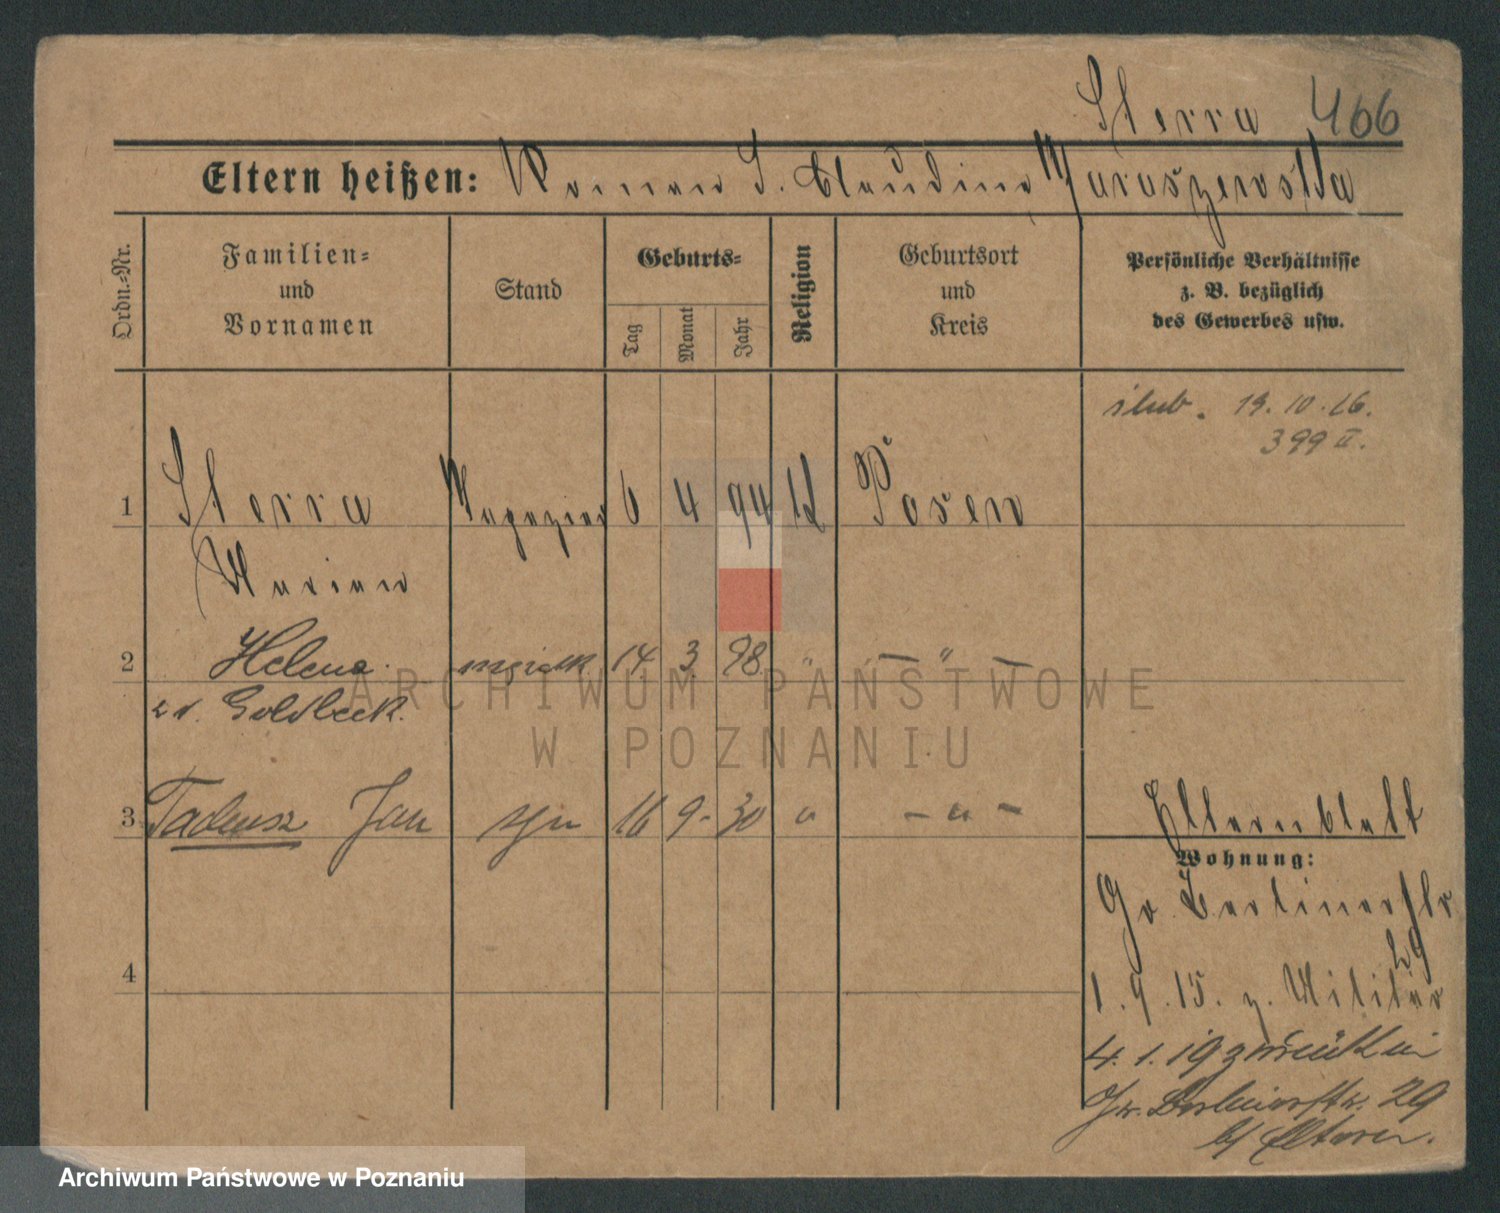 Sterra 466
Eltern heißen: Roman u. Claudina Maruszewska
Ordn.-Nr.
Familien-
und
Vornamen
Stand
Geburts-
Tag
Monat
Jahr
Religion
Geburtsort
und
Kreis
Persönliche Verhältnisse
z. B. bezüglich
des Gewerbes usw.
ślub. 19.10.26.
399 II.
1 Sterra 6 4 94 Posen
Marian
2 Helena 14. 3. 98. " — " —
z d. Goldbeck.
3 Tadeusz Jan syn 16 9. 30 " — " —
Elternblatt
Wohnung:
Gr. Berlinerstr
29
1.9.15. z. Militär
4
4.1.19 zurück in
Gr. Berlinerstr. 29
b/ Eltern.
ARCHIWUM PAŃSTWOWE
W POZNANIU
Archiwum Państwowe w Poznaniu